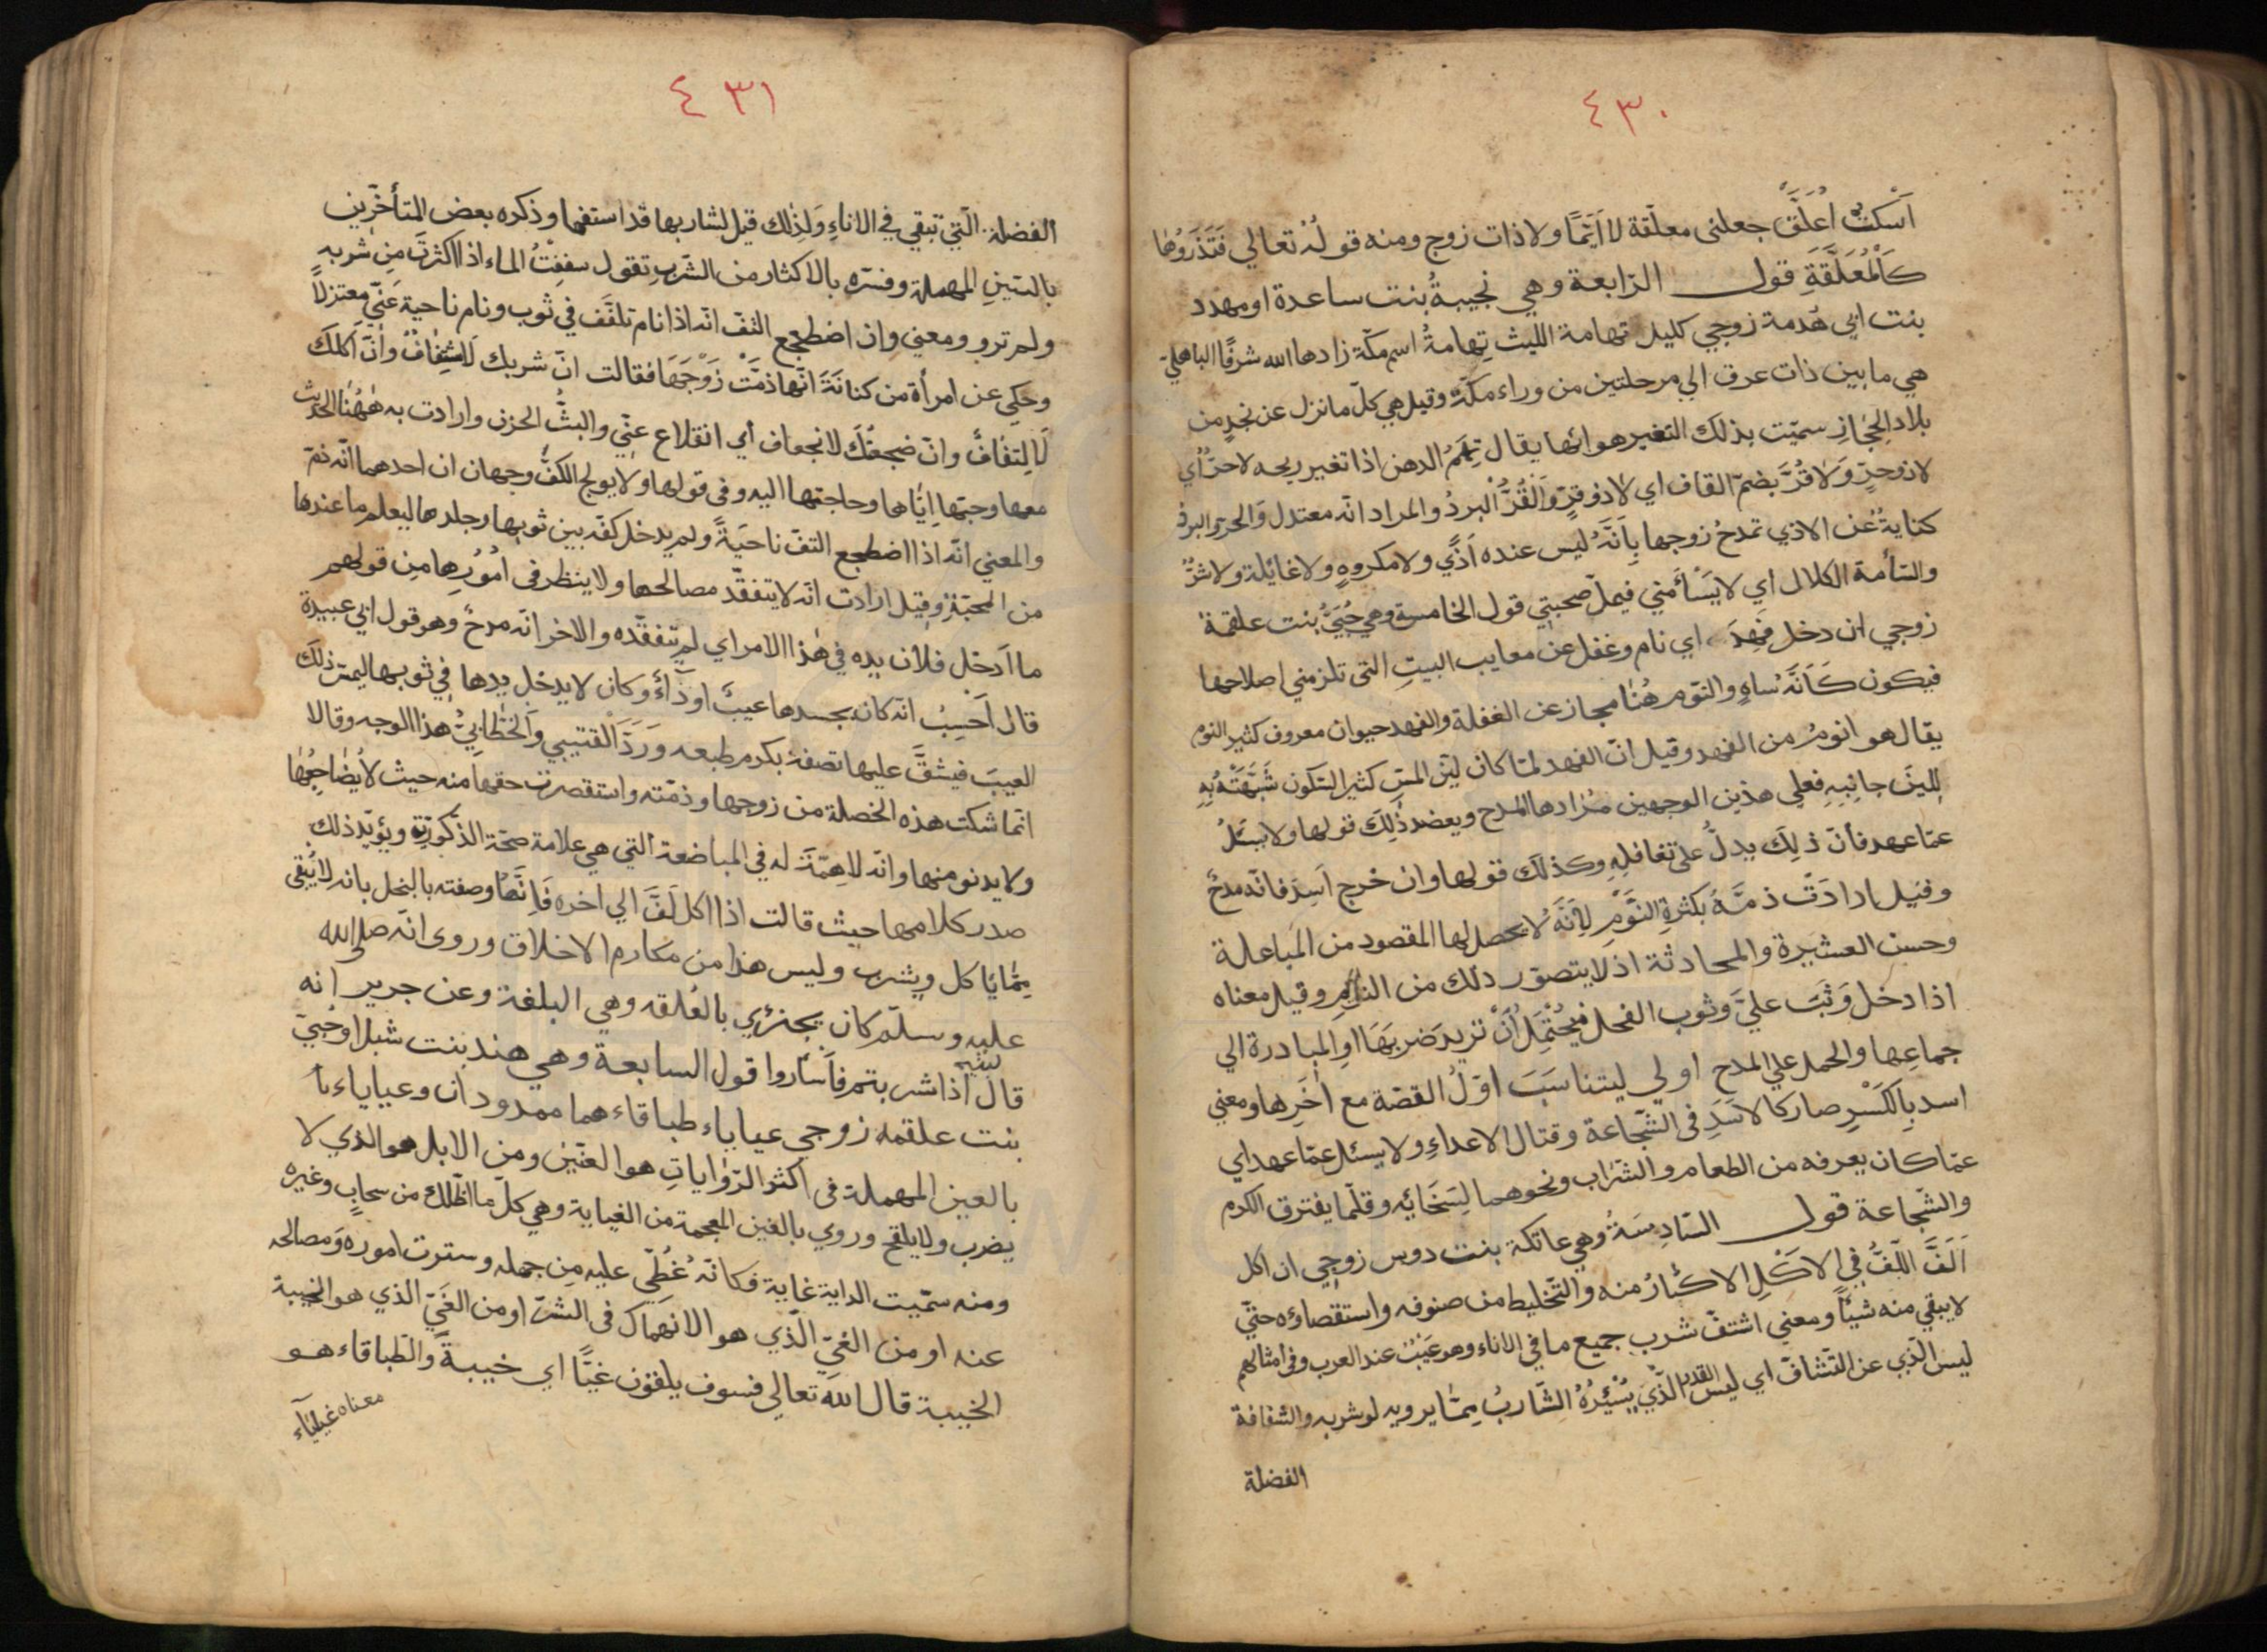 ٤٣٠
اَسْكتْ اُعَلَّقْ جعلنى معلّقة لا اَيّمًا ولا ذات زوج ومنه قولُه تعالي فَتَذَرُوهٰا
كَالْمُعَلَّقَةِ قول الرّابعة وهي نجيبةُ بنت ساعدة او مهدد
بنت ابي هُدمة زوجي كليل تهامة الليث تِهامةُ اسم مكّة زادها الله شرفًا الباهليّ
هي ما بين ذات عرق الي مرحلتين من وراء مكّة وقيل هي كلّ ما نزل عن نجدٍ من
بلاد الحِجٰازِ سمّيت بذلك التغير هوائها يقال تِهَمُ الدهن اذا تغير ريحه لا حرٌّ أي
لا ذو حرٍّ وَلاٰ قُرَّ بضمّ القاف اي لاٰ ذو قرٍّ وَالْقُرُّ الْبردُ والمراد انّه معتدل وَالحرّ والبرد
كنايةٌ عن الاذي تمدحُ زوجها بِاَنَّهُ ليس عنده اَذًي ولا مكروهٍ ولا غائلة ولا شرٌّ
والسّأمة الكلال اي لا يَسْأَمُني فيملّ صحبتِي قول الخامسة وهي حُبَيُّ بنت علقمة
زوجي ان دخل فَهِدَ اي نام وغفل عن معايب البيتِ التى تلزمني اصلاحها
فيكون كَاَنَّهُ سٰاهٍ والنّوم هُنٰا مجاز عن الغفلة والفهد حيوان معروف كثير النوم
يقال هو انومُ من الفهد وقيل انّ الفهد لمّا كان ليّن المسّ كثير السّكون شَبَّهَتْهُ بِهِ
لِلينِ جانِبِهِ فعلي هذين الوجهين مُرٰادها المدح ويعضد ذٰلِكَ قولها ولا يسئلُ
عمّا عهد فأنّ ذلِكَ يدلُّ على تغافلِهِ وكذلك قولها وان خرج اَسِدَ فانّه مدحٌ
وقيل ارادَتْ ذمَّهُ بكثرةِ النَّوْمِ لِاَنَّهُ لا يحصل لها المقصود من المباعلة
وحسن العشيرة والمحادثة اذ لا يتصوّر ذلك من النائم وقيل معناه
اذا دخل وَثَبَ عليَّ وثوب الفحل فَيُحْتَمَلُ اَنْ تريد ضربَهَا اوِ المبادرة الي
جماعِها والحمل علي المدح اولي ليتناسَبَ اوّلُ القصّة مع اٰخَرِها ومعني
اسد بِالكَسْرِ صار كالاسَدِ فى الشّجاعة وقتال الاعداءِ ولا يسئل عمّا عهد اي
عمّا كان يعرفه من الطعام والشّرٰاب ونحوهما لِسَخَائه وقلّما يفترق الكرم
والشّجاعة قول السّادِسَةُ وهي عاتكة بنت دوس زوجي ان اكل
اَلَفَّ اللّفُّ في الاكَلِ الاكثارُ منه والتّخليط من صنوفه واستقصاؤه حتّي
لا يبقي منه شيئًا ومعني اشتفّ شرب جميع ما في الاناء وهو عَيْبٌ عند العرب وفي امثالهم
ليس الّذي عن التّشافّ اي ليس القدر الّذي يُسْئِرُهُ الشّاربُ مِمّٰا يرويه لو شربه والشفافة
الفضلة
٤٣١
الفضلة الّتي تبقي في الاناءِ وَلِذٰلك قيل لشاربها قد استفها وذكره بعض المتأخّرين
بالسّين المهملة وفسّره بالاكثار من الشّربِ تقول سففْتُ الماء اذا اكثرتَ مِن شربه
ولم ترو ومعني وان اضطجع التفّ انّه اذا نام تلفّف في ثوب ونام ناحية عَنّي معتزلًا
وحكي عن امرأة من كنانَةَ انّها ذمَّتْ زَوْجَهَا فقالت انّ شربك لَاشْتِفٰافٌ وانّ اكلك
لَالِتفٰافٌ وانّ ضجعتَك لانجعاف أي انقلاع عنّي والبثُّ الحزن وارادت به هٰهُنٰا الحديث
معها وحبّها اِيّٰاها وحاجتها اليه وفى قولها ولا يولج الكفَّ وجهان ان احدهما انّه ذمّ
والمعني انّه اذا اضطجع التفّ ناحيَةً ولم يدخل كفّه بين ثوبها وجلدها ليعلم ما عندها
من المحبّة وقيل ارادت انّه لا يتفقّد مصالحها ولا ينظر في اُمُورِها مِن قولهم
ما اَدخل فلان يده في هٰذا الامر اي لم يتفقّده والاخر انّه مدحٌ وهو قول ابي عبيدة
قال اَحْسِبُ انّه كان بجسدها عيبٌ او دٓاءٌ وكان لا يدخل يدها في ثوبها ليمسّ ذلك
العيبَ فيشقَّ عليها تصفه بكرم طبعه وَرَدَّ القتيبي والخطّابيُّ هذا الوجه وقالا
انّما شكت هذه الخصلة من زوجها وذمّته واستقصرت حقها منه حيث لا يُضٰاجِعُهٰا
ولا يدنو منها وانّه لا هِمّةَ له في المباضعة التي هي علامة صحّة الذّكوريّة ويؤيّد ذلك
صدر كلامها حيث قالت اذا اكل لَفَّ الي اخره فَاِنَّهٰا وصفته بالبخل بانه لا يُبقى
مِمّٰا يأكل ويشرب وليس هذا من مكارم الاخلاق وروي انّه صلى الله
عليه وسلّم كان يجتزي بالعُلقه وهي البلغة وعن جرير انه
قال لبنيه اذا شربتم فأسٔاروا قول السابعة وهي هند بنت شبل او حُبيّ
بنت علقمه زوجي عياياء طباقاء هما ممدودان وعياياء بٔا
بالعين المهملة فى اكثر الرّوٰاياتِ هو العنّين ومن الابل هو الذي لا
يضرب ولا يلقح وروي بالغين المعجمة من الغياية وهي كلّ ما اظّلك من سحابٍ وغيره
ومنه سمّيت الراية غاية فكانّه غُطّي عليه مِن جهله وسترت اموره وَمصالحه
عنه او من الغيّ الّذي هو الانهَماك فى الشرّ او من الغَيّ الذي هو الخيبة
الخيبة قال اللّه تعالي فسوف يلقون غيًّا اي خيبةً والطّباقاء هو
معناه غياياء